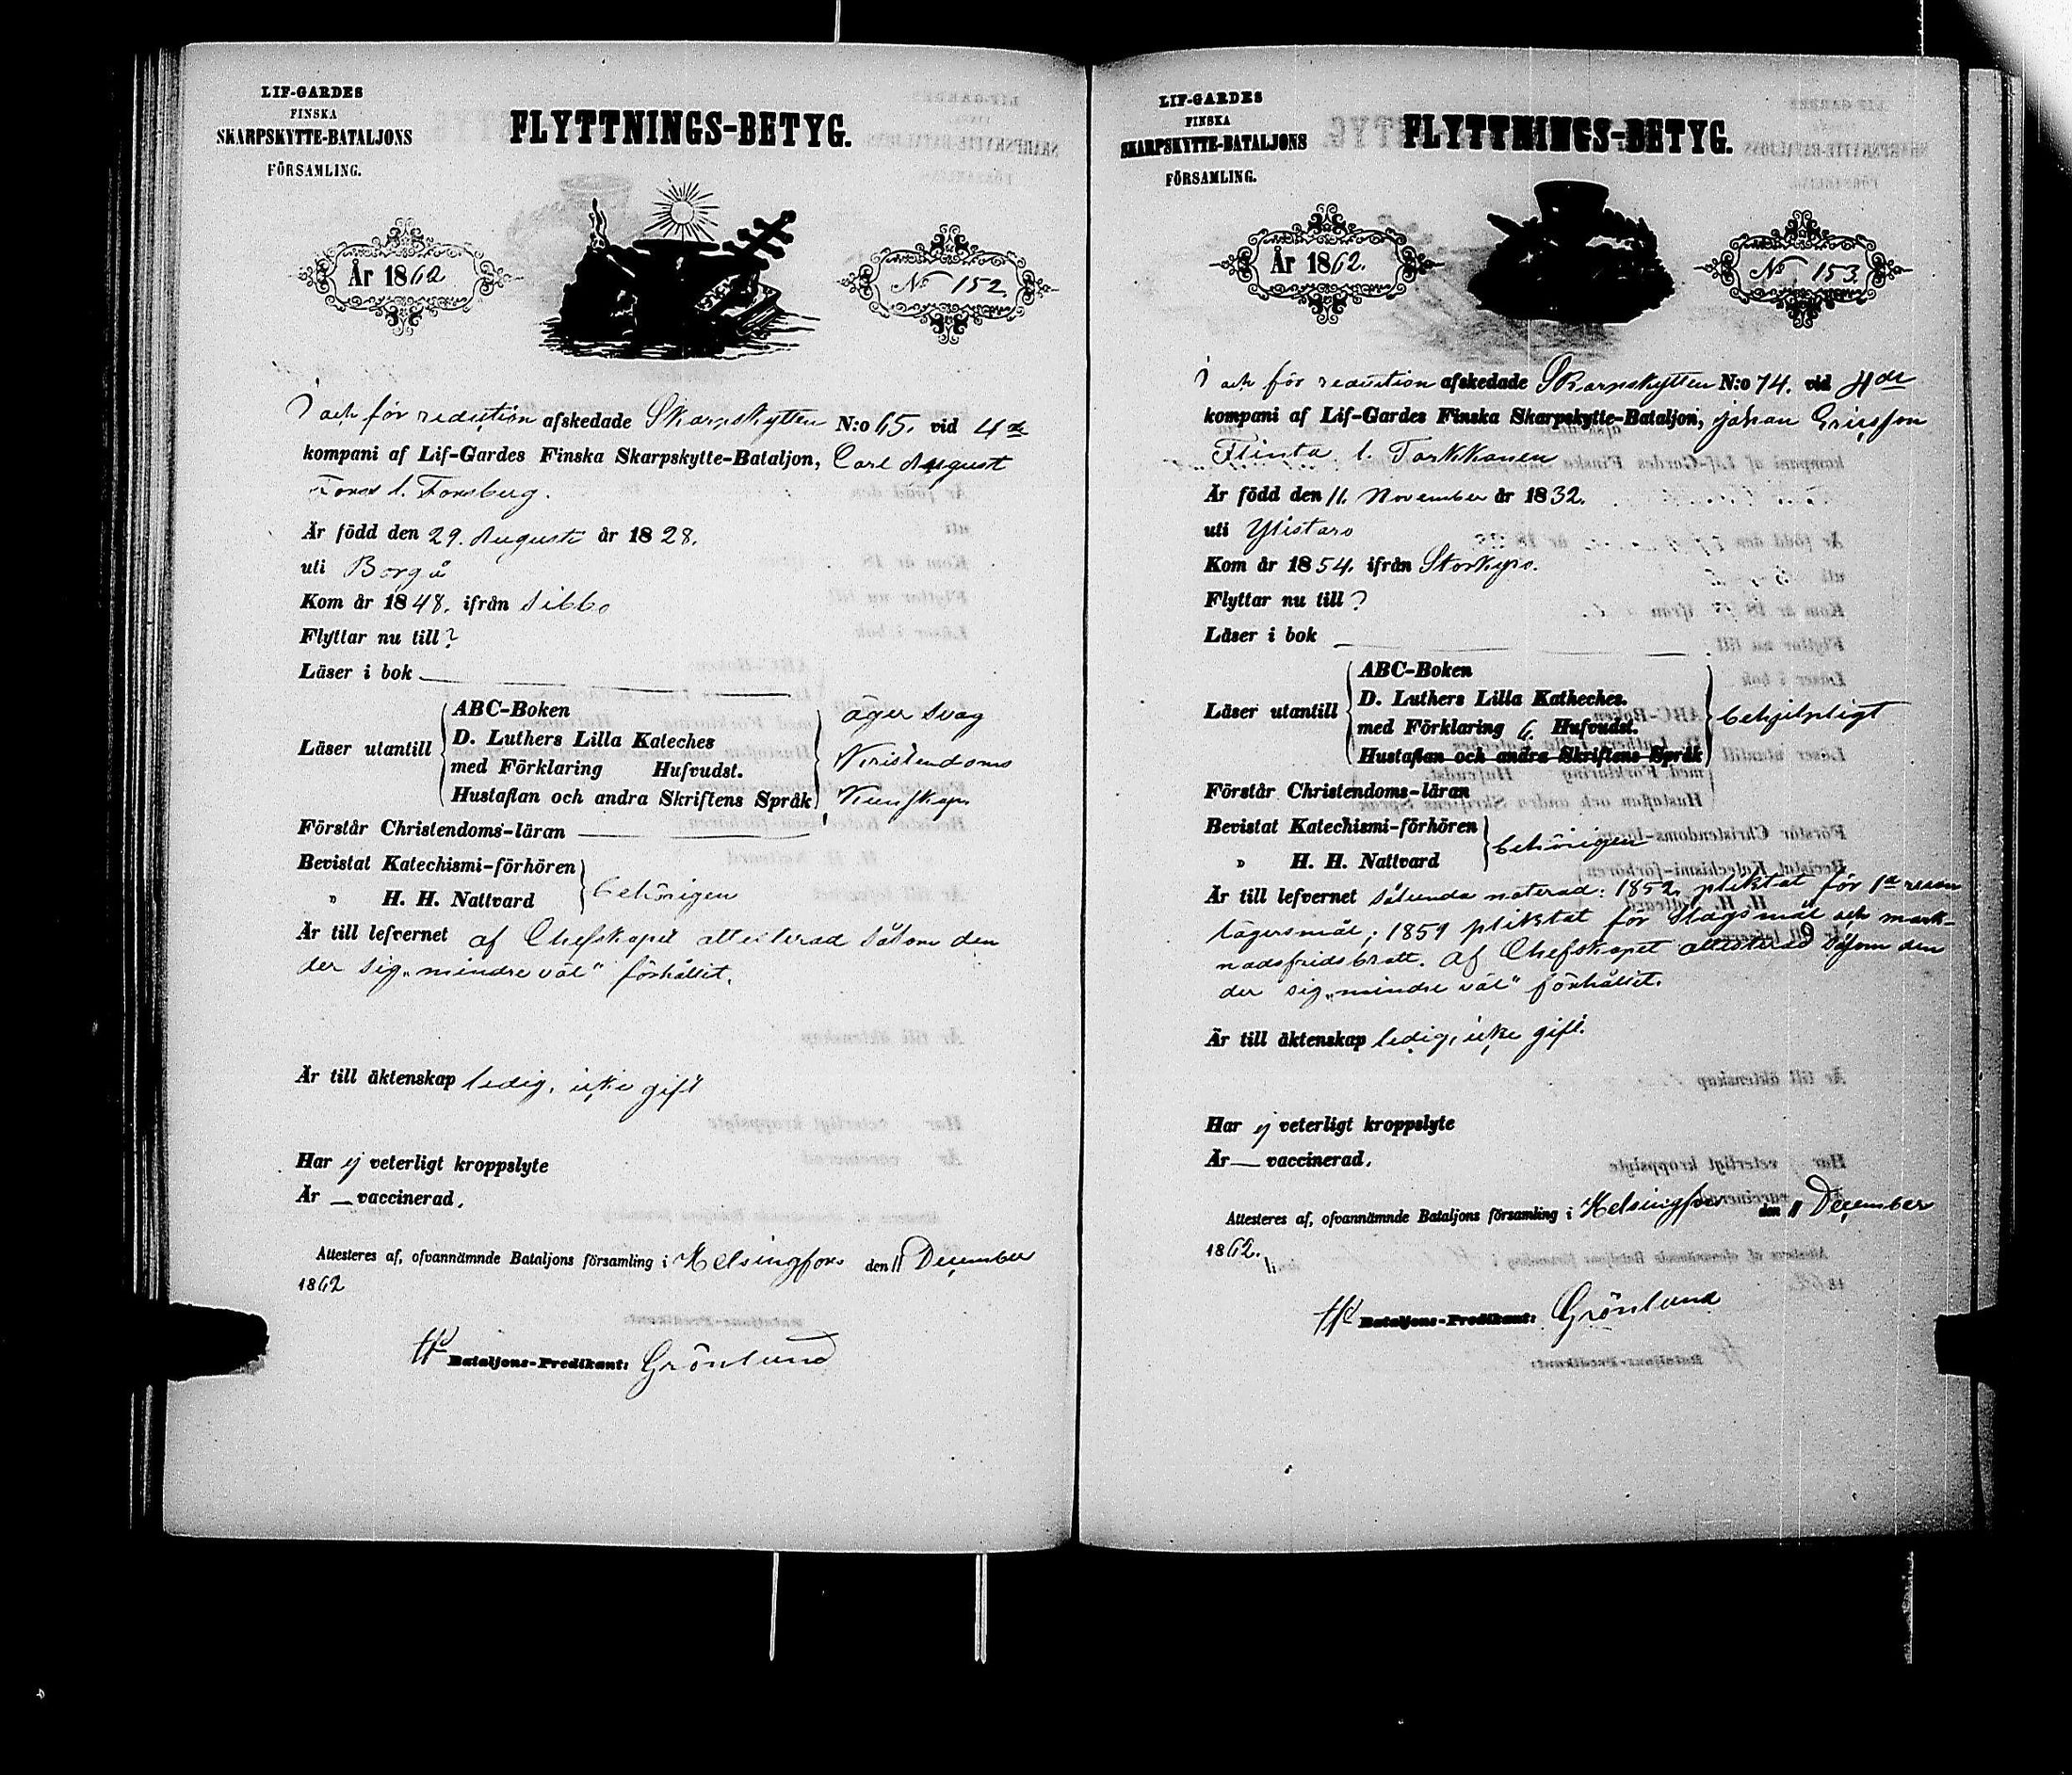 LIF-GARDES
FINSKA
SKARPSKYTTE-BATALJONS
FÖRSAMLING.
FLYTTNINGS-BETYG.
År 1862
No 152.
I och för reduction afskedade Skarpskytten N:o 65. vid 4de
kompani af Lif-Gardes Finska Skarpskytte-Bataljon, Carl August
Forss l. Forsberg.
Är född den 29. Augusti år 1828.
uti Borgå
Kom år 1848. ifrån Sibbo
Flyttar nu till ?
Läser i bok
Läser utantill
ABC-Boken
D. Luthers Lilla Kateches
med Förklaring Hufvudst.
Hustaflan och andra Skriftens Språk
äger svag
Kristendoms
Kunskap
Förstår Christendoms-läran
Bevistat Katechismi-förhören
" H. H. Nattvard
behörigen
Är till lefvernet af Chefskapet attesterad såsom den
der sig „mindre väl" förhållit.
Är till äktenskap ledig, icke gift
Har ej veterligt kroppslyte
Är — vaccinerad.
Attesteres af, ofvannämnde Bataljons församling i Helsingfors den 11 December
1862
Bataljons-Predikant: Grönlund
LIF-GARDES
FINSKA
SKARPSKYTTE-BATALJONS
FÖRSAMLING.
FLYTTNINGS-BETYG.
År 1862.
No 153.
I och för reduction afskedade Skarpskytten N:o 74. vid 4de
kompani af Lif-Gardes Finska Skarpskytte-Bataljon, Johan Ericsson
Flinta l. Torkkanen
Är född den 11. November år 1832.
uti Ylistaro
Kom år 1854. ifrån Storkyro.
Flyttar nu till ?
Läser i bok
Läser utantill
ABC-Boken
D. Luthers Lilla Katheches.
med Förklaring 6. Hufvudst.
Hustaflan och andra Skriftens Språk
behjelpligt
Förstår Christendoms-läran
Bevistat Katechismi-förhören
" H. H. Nattvard
behörigen
Är till lefvernet sålunda noterad: 1852 pliktat för 1a resan
lägersmål; 1859 pliktat för slagsmål och mark-
nadsfridsbrott. Af Chefskapet attesterad såsom den
der sig „mindre väl" förhållit.
Är till äktenskap ledig, icke gift.
Har ej veterligt kroppslyte
Är — vaccinerad.
Attesteres af, ofvannämnde Bataljons församling i Helsingfors den 11 December
1862.
Bataljons-Predikant: Grönlund